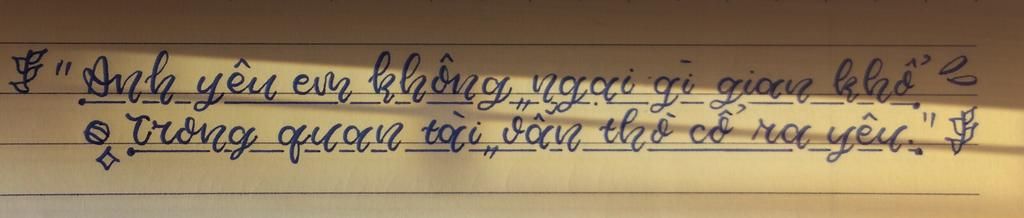 "Anh yêu em không ngại gì gian khổ
Trong quan tài, vẫn thò cổ ra yêu."